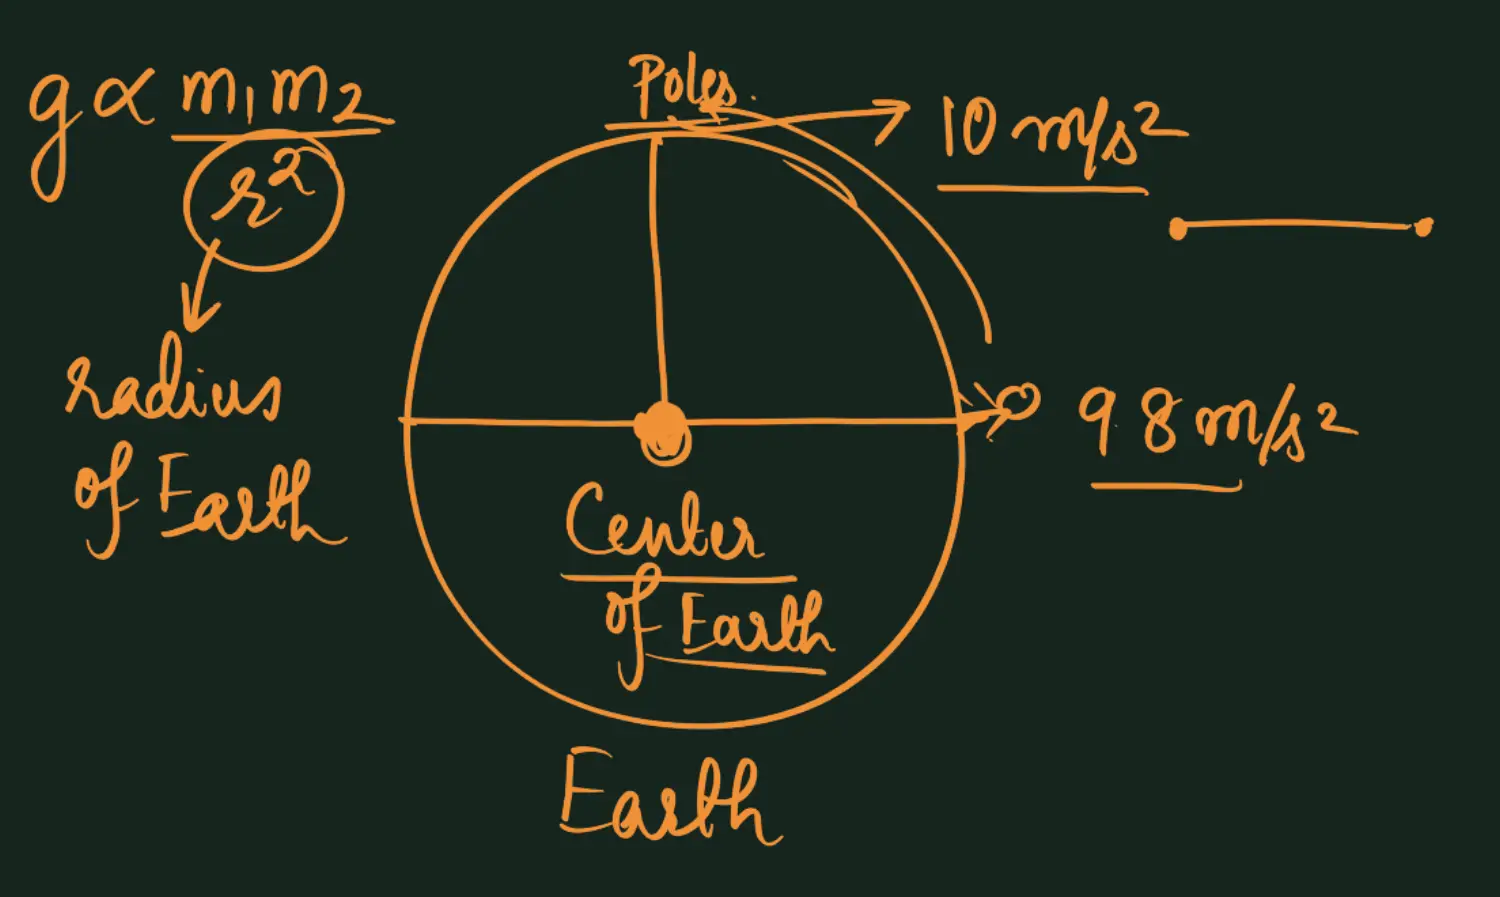 g ∝ m₁m₂
r²
radius
of Earth
Poles.
10 m/s²
98 m/s²
Center
of Earth
Earth